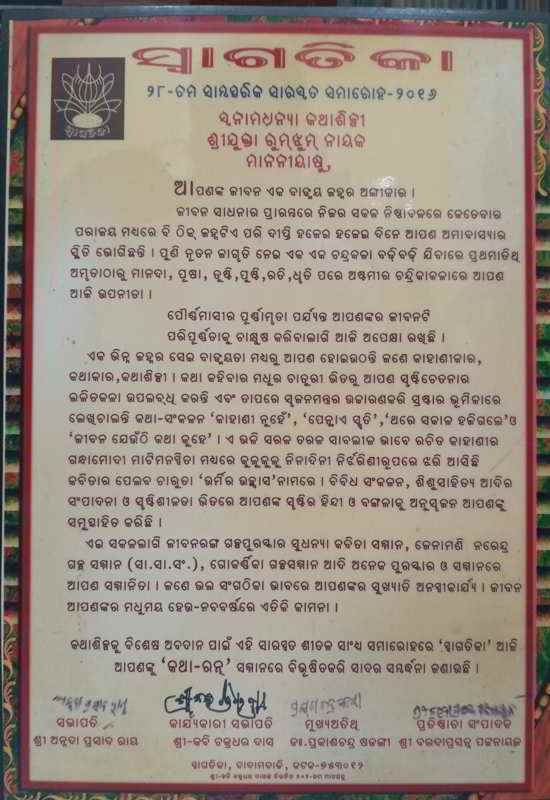 ସ୍ୱାଗତିକା
ସ୍ୱାଗତିକା
୨୮-ତମ ସାମ୍ବତ୍ସରିକ ସାରସ୍ୱତ ସମାରୋହ-୨୦୧୬
ସ୍ୱନାମଧନ୍ୟା କଥାଶିଳ୍ପୀ
ଶ୍ରୀଯୁକ୍ତା ରୁମ୍‌ଝୁମ୍ ନାୟକ
ମାନନୀୟାଷୁ,
ଆପଣଙ୍କ ଜୀବନ ଏକ ବାଙ୍ମୟ ଜହ୍ନର ଅଙ୍ଗୀକାର ।
ଜୀବନ ସାଧନାର ପ୍ରାରମ୍ଭରେ ନିଜର ସକଳ ନିଷ୍ଠାବଳରେ କେତେବାର
ପରାଜୟ ମଧ୍ୟରେ ବି ଠିକ୍ ଜହ୍ନଟିଏ ପରି ଦୀପ୍ତି ହଜେଇ ହଜେଇ ଦିନେ ଆପଣ ଅମାବାସ୍ୟାର
ସ୍ଥିତି ଭୋଗିଛନ୍ତି । ପୁଣି ନୂତନ ଜାଗୃତି ନେଇ ଏକ ଏକ ଚନ୍ଦ୍ରକଳା ବଢ଼ିବଢ଼ି ଯିବାରେ ପ୍ରଥମାତିଥି
ଅମୃତାଠାରୁ ମାନଦା, ପୂଷା, ତୁଷ୍ଟି,ପୁଷ୍ଟି,ରତି,ଧୃତି ପରେ ଅଷ୍ଟମୀର ଚନ୍ଦ୍ରିକାକଳାରେ ଆପଣ
ଆଜି ଉପନୀତା ।
ପୌର୍ଣ୍ଣମାସୀର ପୂର୍ଣ୍ଣାମୃତା ପର୍ଯ୍ୟନ୍ତ ଆପଣଙ୍କର ଜୀବନଟି
ପରିପୂର୍ଣ୍ଣତାକୁ ଚାକ୍ଷୁଷ କରିବାଲାଗି ଆଜି ଅପେକ୍ଷା ରଖିଛି ।
ଏକ ଭିନ୍ନ ଜହ୍ନର ସେଇ ବାଙ୍ମୟତା ମଧ୍ୟରୁ ଆପଣ ହୋଇଉଠନ୍ତି ଜଣେ କାହାଣୀକାର,
କଥାକାର,କଥାଶିଳ୍ପୀ । କଥା କହିବାର ମଧୁର ଚାତୁରୀ ଭିତରୁ ଆପଣ ସୃଷ୍ଟିଚେତନାର
ଇଙ୍ଗିତକଳା ଉପଲବ୍ଧ କରନ୍ତି ଏବଂ ତାପରେ ସୃଜନମନ୍ତ୍ରର ଉଚ୍ଚାରଣକରି ସ୍ରଷ୍ଟାର ଭୂମିକାରେ
ଲେଖିଚାଲନ୍ତି କଥା-ସଂକଳନ ‘କାହାଣୀ ନୁହେଁ’, ‘ପେନ୍ଥାଏ ସ୍ମୃତି’,‘ଥରେ ସକାଳ ହଜିଗଲେ’ଓ
‘ଜୀବନ ଯେଉଁଠି କଥା କୁହେ’ । ଏ ଭଳି ସରଳ ତରଳ ସାବଲୀଳ ଭାବେ ରଚିତ କାହାଣୀର
ଗନ୍ଧାମୋଦୀ ମାଟିମନସ୍କିତା ମଧ୍ୟରେ କୁଳୁକୁଳୁ ନିନାଦିନୀ ନିର୍ଝରିଣୀରୂପରେ ଝରି ଆସିଛି
କବିତାର ପେଲବ ଚାରୁତା ‘ଉର୍ମିର ଉଚ୍ଛ୍ୱାସ’ନାମରେ । ବିବିଧ ସଂକଳନ, ଶିଶୁସାହିତ୍ୟ ଆଦିର
ସଂପାଦନା ଓ ସୃଷ୍ଟିଶୀଳତା ଭିତରେ ଆପଣଙ୍କ ସୃଷ୍ଟିର ହିନ୍ଦୀ ଓ ବଙ୍ଗଳାକୁ ଅନୁସୃଜନ ଆପଣଙ୍କୁ
ସମୁତ୍ସାହିତ କରିଛି ।
ଏଇ ସକଳଲାଗି ଜୀବନରଙ୍ଗ ଗଳ୍ପପୁରସ୍କାର ସୁଧନ୍ୟା କବିତା ସମ୍ମାନ, ଜେନାମଣି ନରେନ୍ଦ୍ର
ଗଳ୍ପ ସମ୍ମାନ (ସା.ସା.ସଂ.), ଗୋକର୍ଣ୍ଣିକା ଗଳ୍ପସମ୍ମାନ ଆଦି ଅନେକ ପୁରସ୍କାର ଓ ସମ୍ମାନରେ
ଆପଣ ସମ୍ମାନିତା । ଜଣେ ଭଲ ସଂଗଠିକା ଭାବରେ ଆପଣଙ୍କର ସୁଖ୍ୟାତି ଅନସ୍ୱୀକାର୍ଯ୍ୟ । ଜୀବନ
ଆପଣଙ୍କର ମଧୁମୟ ହେଉ-ନବବର୍ଷରେ ଏତିକି କାମନା ।
କଥାଶିଳ୍ପକୁ ବିଶେଷ ଅବଦାନ ପାଇଁ ଏହି ସାରସ୍ୱତ ଶୀତଳ ସାଂଧ୍ୟ ସମାରୋହରେ ‘ସ୍ୱାଗତିକା’ ଆଜି
ଆପଣଙ୍କୁ ‘କଥା-ରତ୍ନ’ ସମ୍ମାନରେ ବିଭୂଷିତକରି ସାଦର ସମ୍ବର୍ଦ୍ଧନା ଜଣାଉଛି ।
ସଭାପତି କାର୍ଯ୍ୟକାରୀ ସଭାପତି ମୁଖ୍ୟଅତିଥି ପ୍ରତିଷ୍ଠାତା ସଂପାଦକ
ଶ୍ରୀ ଅନ୍ନଦା ପ୍ରସାଦ ରାୟ ଶ୍ରୀ-କବି ଚକ୍ରଧର ଦାସ ଡଃ.ପ୍ରକାଶଚନ୍ଦ୍ର ଷଡ଼ଙ୍ଗୀ ଶ୍ରୀ ବରଦାପ୍ରସନ୍ନ ପଟ୍ଟନାୟକ
ସ୍ୱାଗତିକା, ବାଦାମବାଡ଼ି, କଟକ-୭୫୩୦୧୨